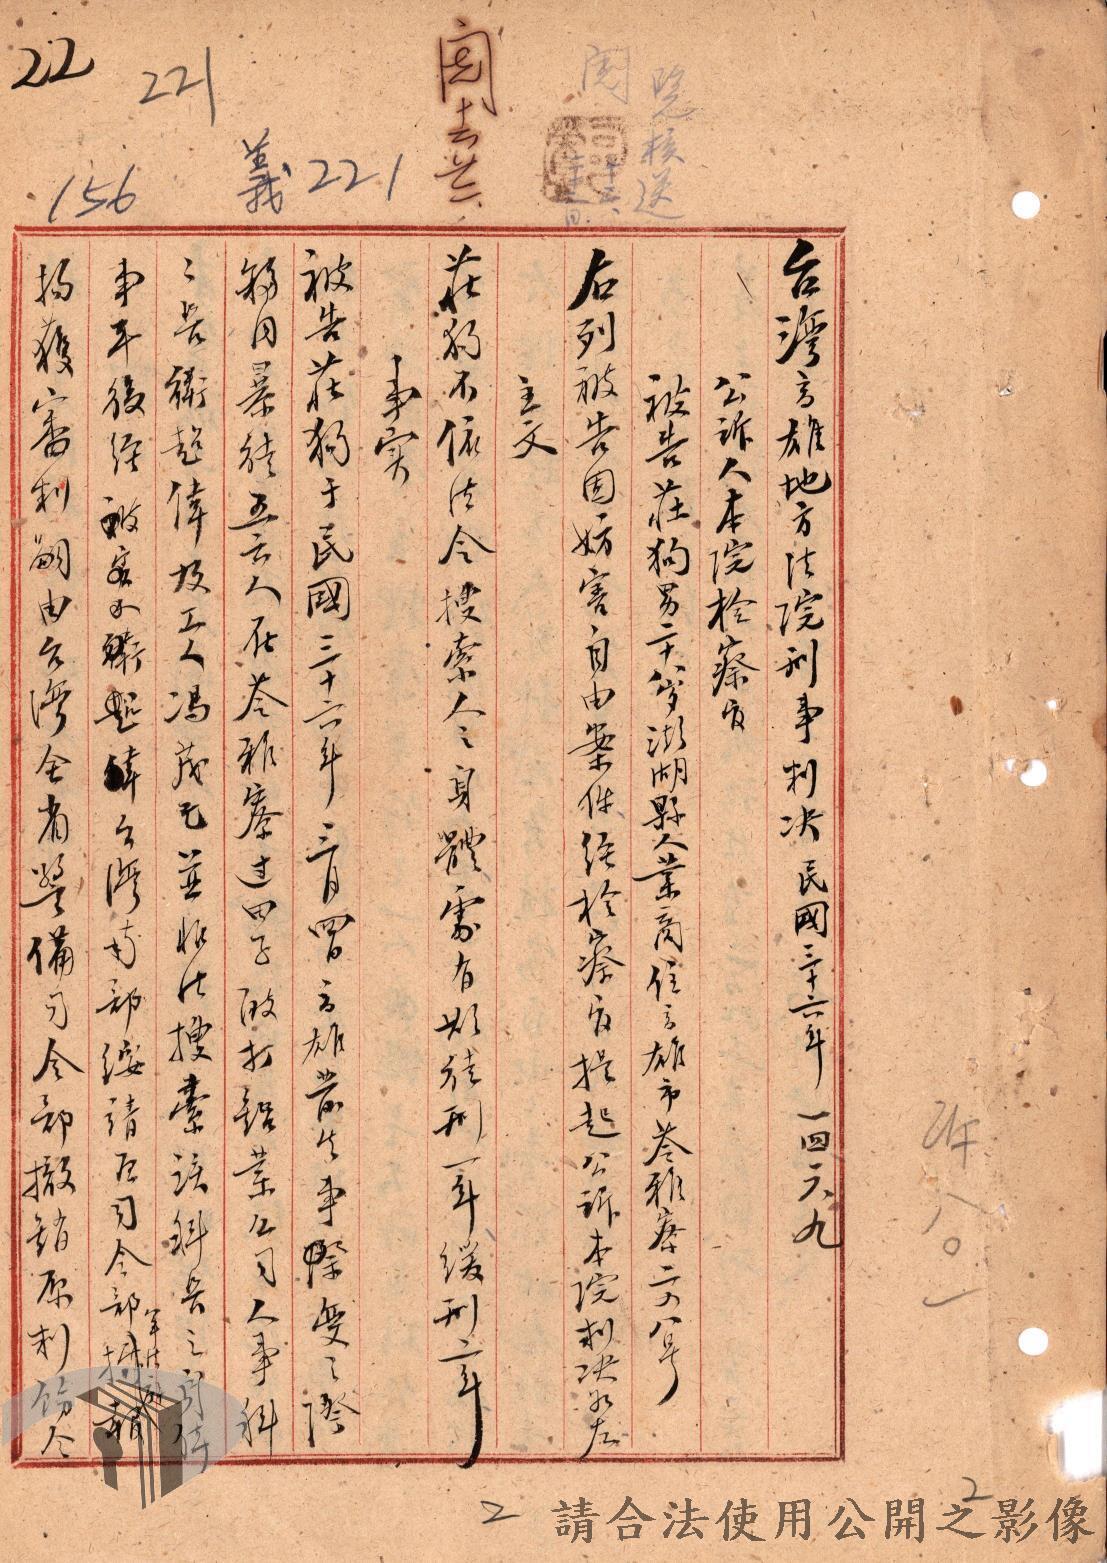 22
221
156
義221
閱
閱
台灣高雄地方法院刑事判決 民國三十六年 一四六九
公訴人本院檢察官
被告莊狗男二十八岁澎湖縣人業商住高雄市苓雅寮二八号
右列被告因妨害自由案件経檢察官提起公訴本院判決如左
主文
莊狗不依法令搜索人之身體處有期徒刑一年緩刑二年
事实
被告莊狗于民國三十六年三月四日高雄發生事
糾同暴徒五六人在苓雅寮過田子毆打鋁業公司人事科
科長衛超偉及工人馮茂 並非法搜索該科長之身体
事平後经被害人衛超偉台灣南部綏靖區司令部軍法
獲審判嗣由台灣全省警備司令部撤銷原判飭令
2
2
請合法使用公開之影像